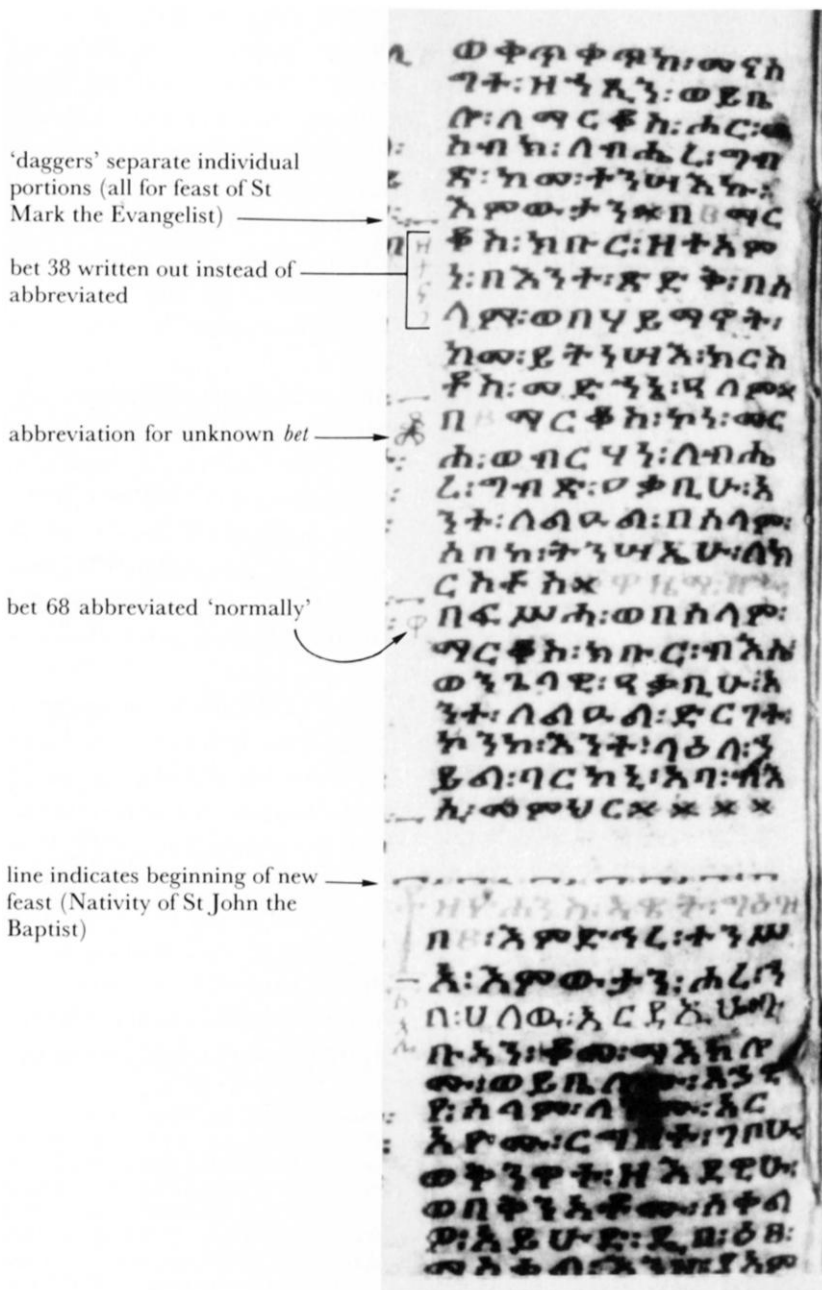 'daggers' separate individual
portions (all for feast of St
Mark the Evangelist)
bet 38 written out instead of
abbreviated
abbreviation for unknown bet
bet 68 abbreviated 'normally'
line indicates beginning of new
feast (Nativity of St John the
Baptist)
ወቅጥቀጥከ፡መናስ
ግተ፡ዘኀጺን፡ወይቤ
ሎ፡ለማርቆስ፡ሑር፡
ስብክ፡ለብሔረ፡ግብ
ጽ፡ከመ፡ተንሣእኩ፡
እምውታን※በ ማር
ቆስ፡ክቡር፡ዘተአም
ነ፡በእንተ፡ጽድቅ፡በሰ
ላም፡ወበሃይማኖት፡
ከመ፡ይትንሣእ፡ክርስ
ቶስ፡መድኀኔ፡ዓለም※
በ ማርቆስ፡ኮነ፡መር
ሐ፡ወብርሃነ፡ለብሔ
ረ፡ግብጽ፡ዐቃቢሁ፡አ
ንተ፡ለልዑል፡በሰላም፡
ሰበከ፡ትንሣኤሁ፡ለክ
ርስቶስ※
በፍሥሓ፡ወበሰላም፡
ማርቆስ፡ክቡር፡ብእሴ
ወንጌላዊ፡ዓቃቢሁ፡አ
ንተ፡ለልዑል፡ድርገተ፡
ኮንከ፡እንተ፡ላዕለ፡ኀ
ይል፡ባርከኒ፡አባ፡ብእ
ሲ፡መምህር※※※※
በ ፡እምድኅረ፡ተንሥ
አ፡እምውታን፡ሐረ፡ኀ
በ፡ሀለዉ፡አርዳኢሁ፡
ቡአን፡ቆመ፡ማእከሎ
ሙ፡ወይቤሎሙ፡
ሰላም፡ አር
አዮሙ፡ርግዘተ፡ገቦሁ
ወቅንዋተ፡ዘእደዊሁ፡
ወበቅንአቶሙ፡ሰቀል
ዎ፡አይሁድ፡ዲበ፡ዕፀ፡